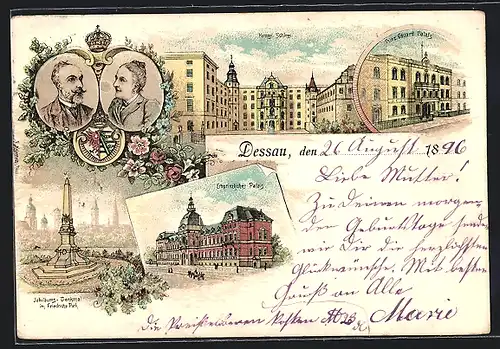 Herzogl. Schloss
Prinz Eduard Palais
Dessau, den 26 August 1896
Liebe Mutter!
Zu Deinem morgen-
den Geburtstage senden
wir Dir die herzlichsten
Glückwünsche. Mit besten
Gruß an Alle
Marie
Erbprinzliches Palais
Jubiläums-Denkmal
im Friedrichs Park.
die Preiselbeeren kosten